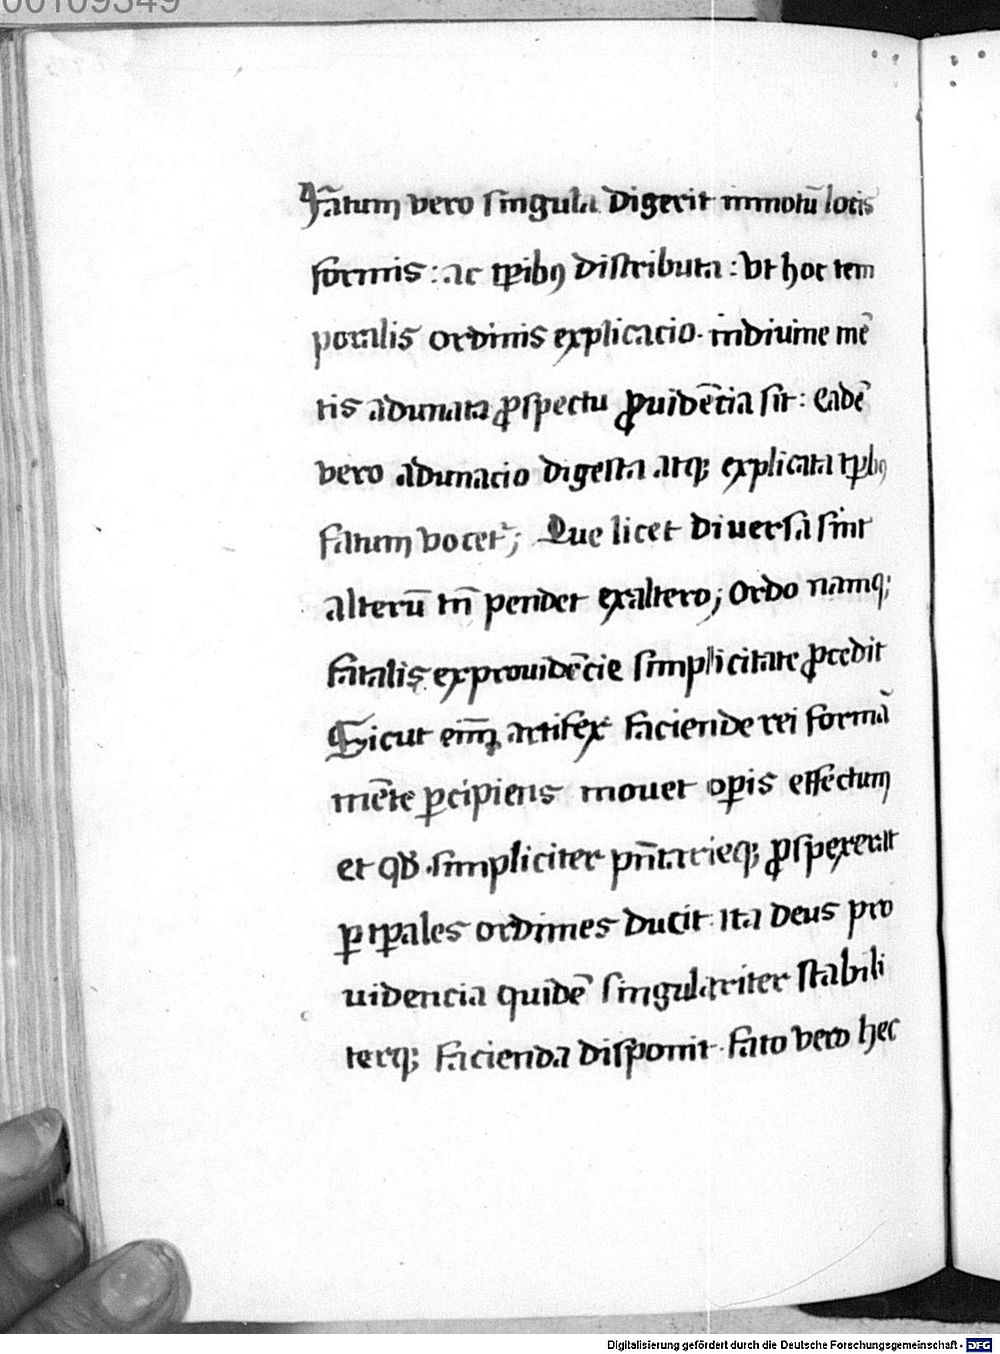 00109349
Fātum vero singula digerit in motū locis
formis : ac tꝑibꝯ distributa : Vt hoc tem
poralis ordinis explicacio · in diuine mē
tis adunata ꝓspectu ꝓuidēcia sit : Eadē
vero adunacio digesta atqꝫ explicata tꝑibꝯ
fatum vocetᷣ ; Que licet diuersa sint
alterū tn̄ pendet ex altero ; Ordo namqꝫ
fatalis ex prouidēcie simplicitate ꝓcedit
Sicut enim artifex faciende rei formā
mēte p̄cipiens mouet oꝑis effectum
et qd̓ · simpliciter pn̄tarieqꝫ ꝓspexerat
ꝑ tꝑales ordines ducit · Ita deus pro
uidencia quidē singulariter stabili
terqꝫ facienda disponit · Fato vero hec
Digitalisierung gefördert durch die Deutsche Forschungsgemeinschaft - DFG